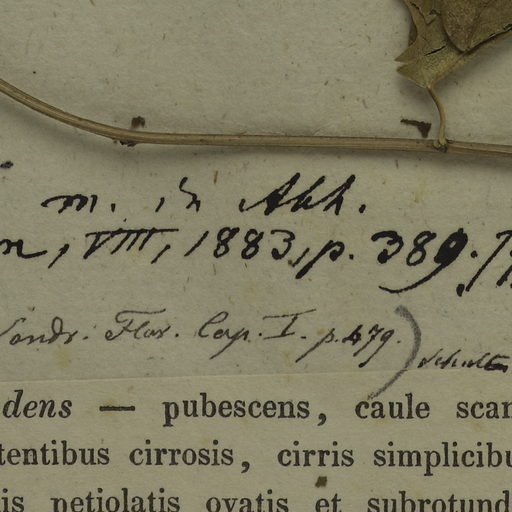 m. in Abh.
n, VIII, 1883, p. 389.
Sondr. Flor. Cap. I. p. 479.)
dens — pubescens, caule scan
tentibus cirrosis, cirris simplicibu
is petiolatis ovatis et subrotund